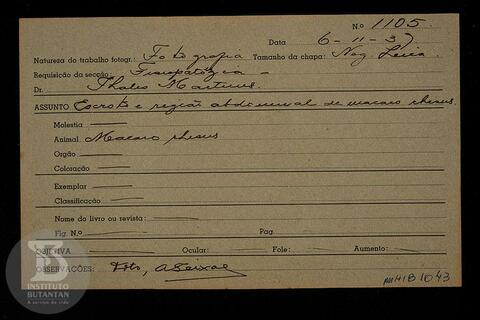 N.o 1105.
Data 6-11-37
Natureza do trabalho fotogr.: Fotografia Tamanho da chapa: Neg. Leica
Requisição da secção: Fisiopatologia -
Dr. Thales Martins
ASSUNTO Escroto e região abdominal de macaco rhesus.
Molestia
Animal Macaco rhesus
Orgão
Coloração
Exemplar
Classificação
Nome do livro ou revista:
Fig. N.o Pag.
OBJETIVA Ocular: Fole: Aumento:
OBSERVAÇÕES: Foto, A Seixas
INSTITUTO
BUTANTAN
A serviço da vida